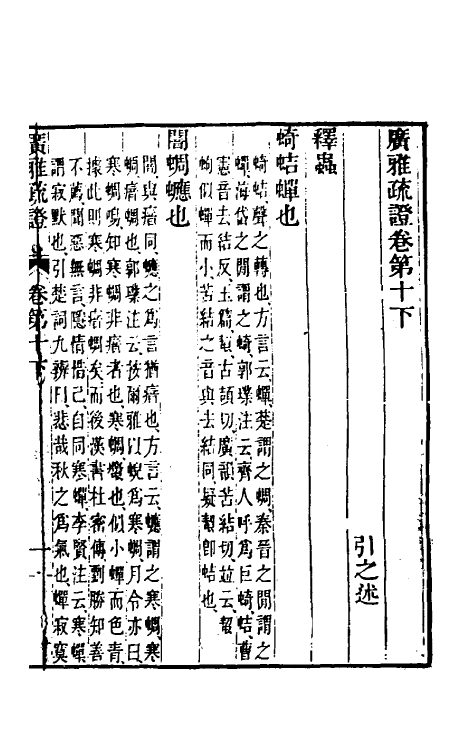 廣雅疏證卷第十下
引之述
釋蟲
蛥蛣蟬也
蛥蛣聲之轉也方言云蟬楚謂之蜩秦晉之閒謂之
蟬海岱之閒謂之蛥郭璞注云齊人呼爲巨蛥蛣曹
憲音去結反玉篇䫌古頡切廣韻苦結切竝云䘆
蚼似蟬而小苦結之音與去結同疑䘆卽蛣也
闇蜩䗺也
闇與瘖同䗺之爲言猶瘖也方言云䗺謂之寒蜩寒
蜩瘖蜩也郭璞注云按爾雅以蜺爲寒蜩月令亦曰
寒蜩鳴知寒蜩非瘖者也寒蜩螿也似小蟬而色青
據此則寒蜩非瘖蜩矣而後漢書杜密傳劉勝知善
不薦聞惡無言隱情惜己自同寒蟬李賢注云寒蟬
謂寂默也引楚詞九辯曰悲哉秋之爲氣也蟬寂寞
廣雅疏證 卷第十下 一